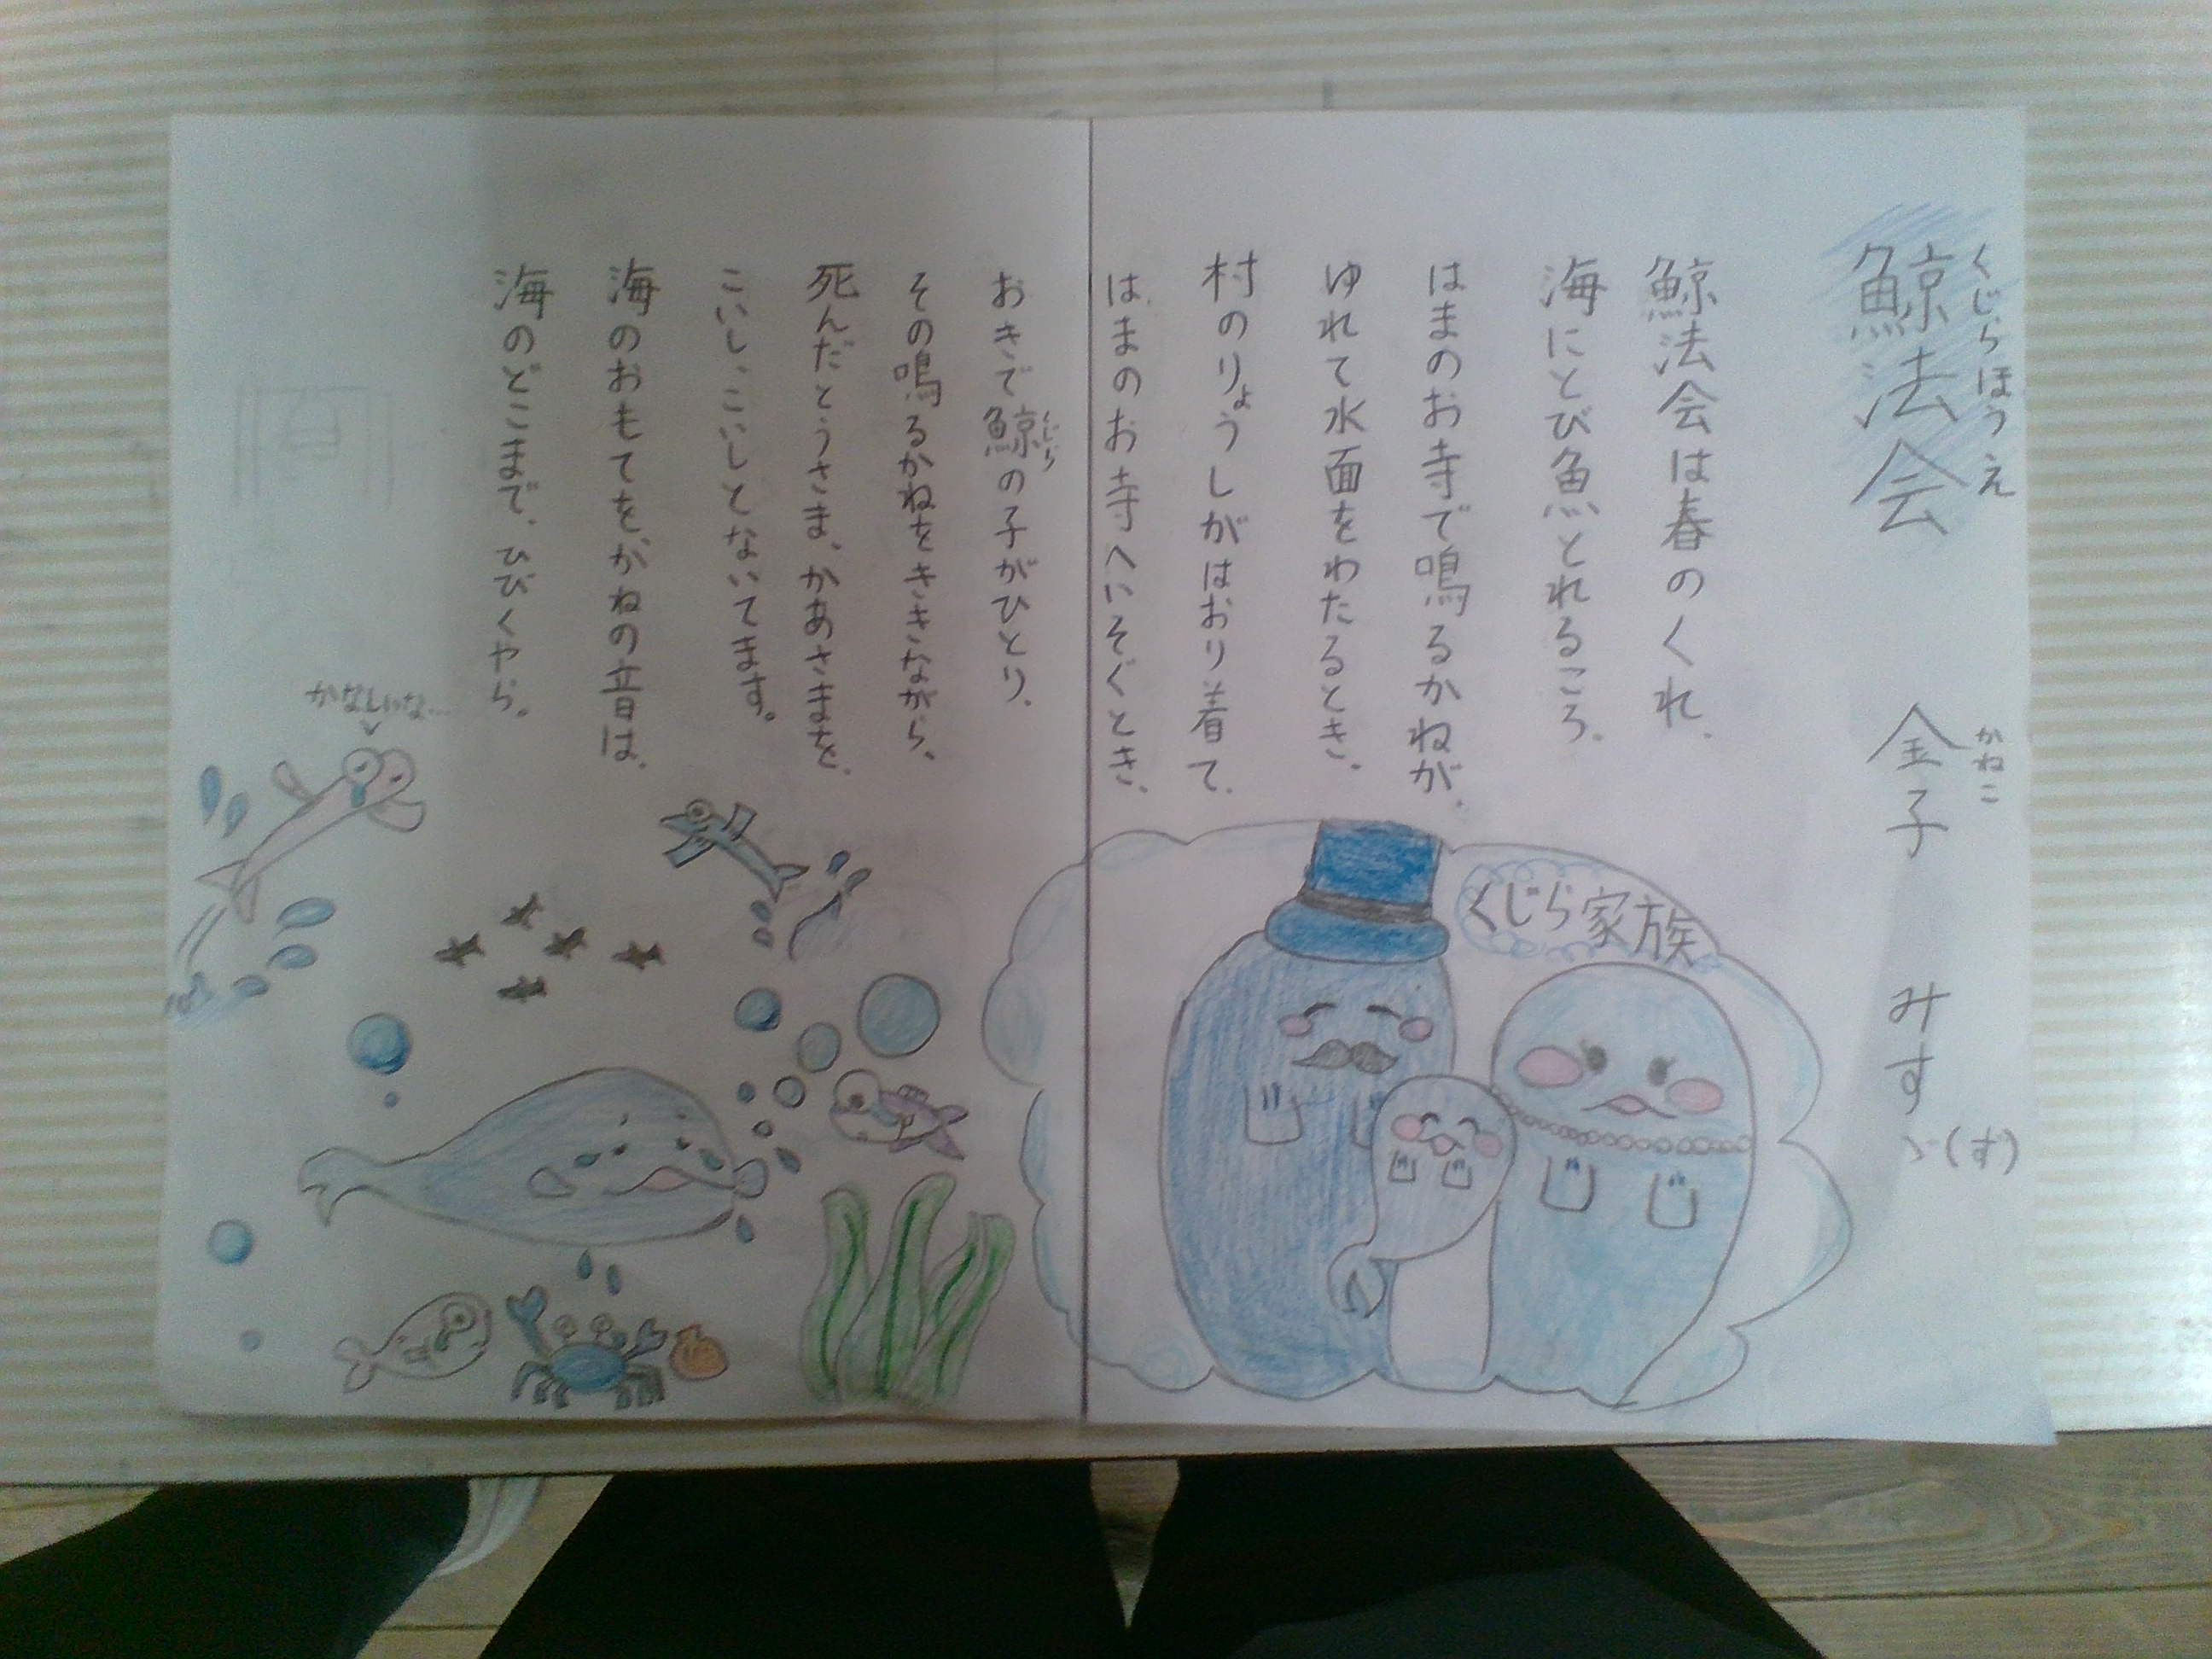 鯨法会
くじらほうえ
金子 みすゞ(ず)
かねこ
鯨法会は春のくれ、
海にとび魚とれるころ。
はまのお寺で鳴るかねが、
ゆれて水面をわたるとき、
村のりょうしがはおり着て、
はまのお寺へいそぐとき、
おきで鯨の子がひとり、
くじら
その鳴るかねをききながら、
死んだとうさま、かあさまを、
こいし、こいしとないてます。
海のおもてを、かねの音は、
海のどこまで、ひびくやら。
くじら家族
かなしいな…